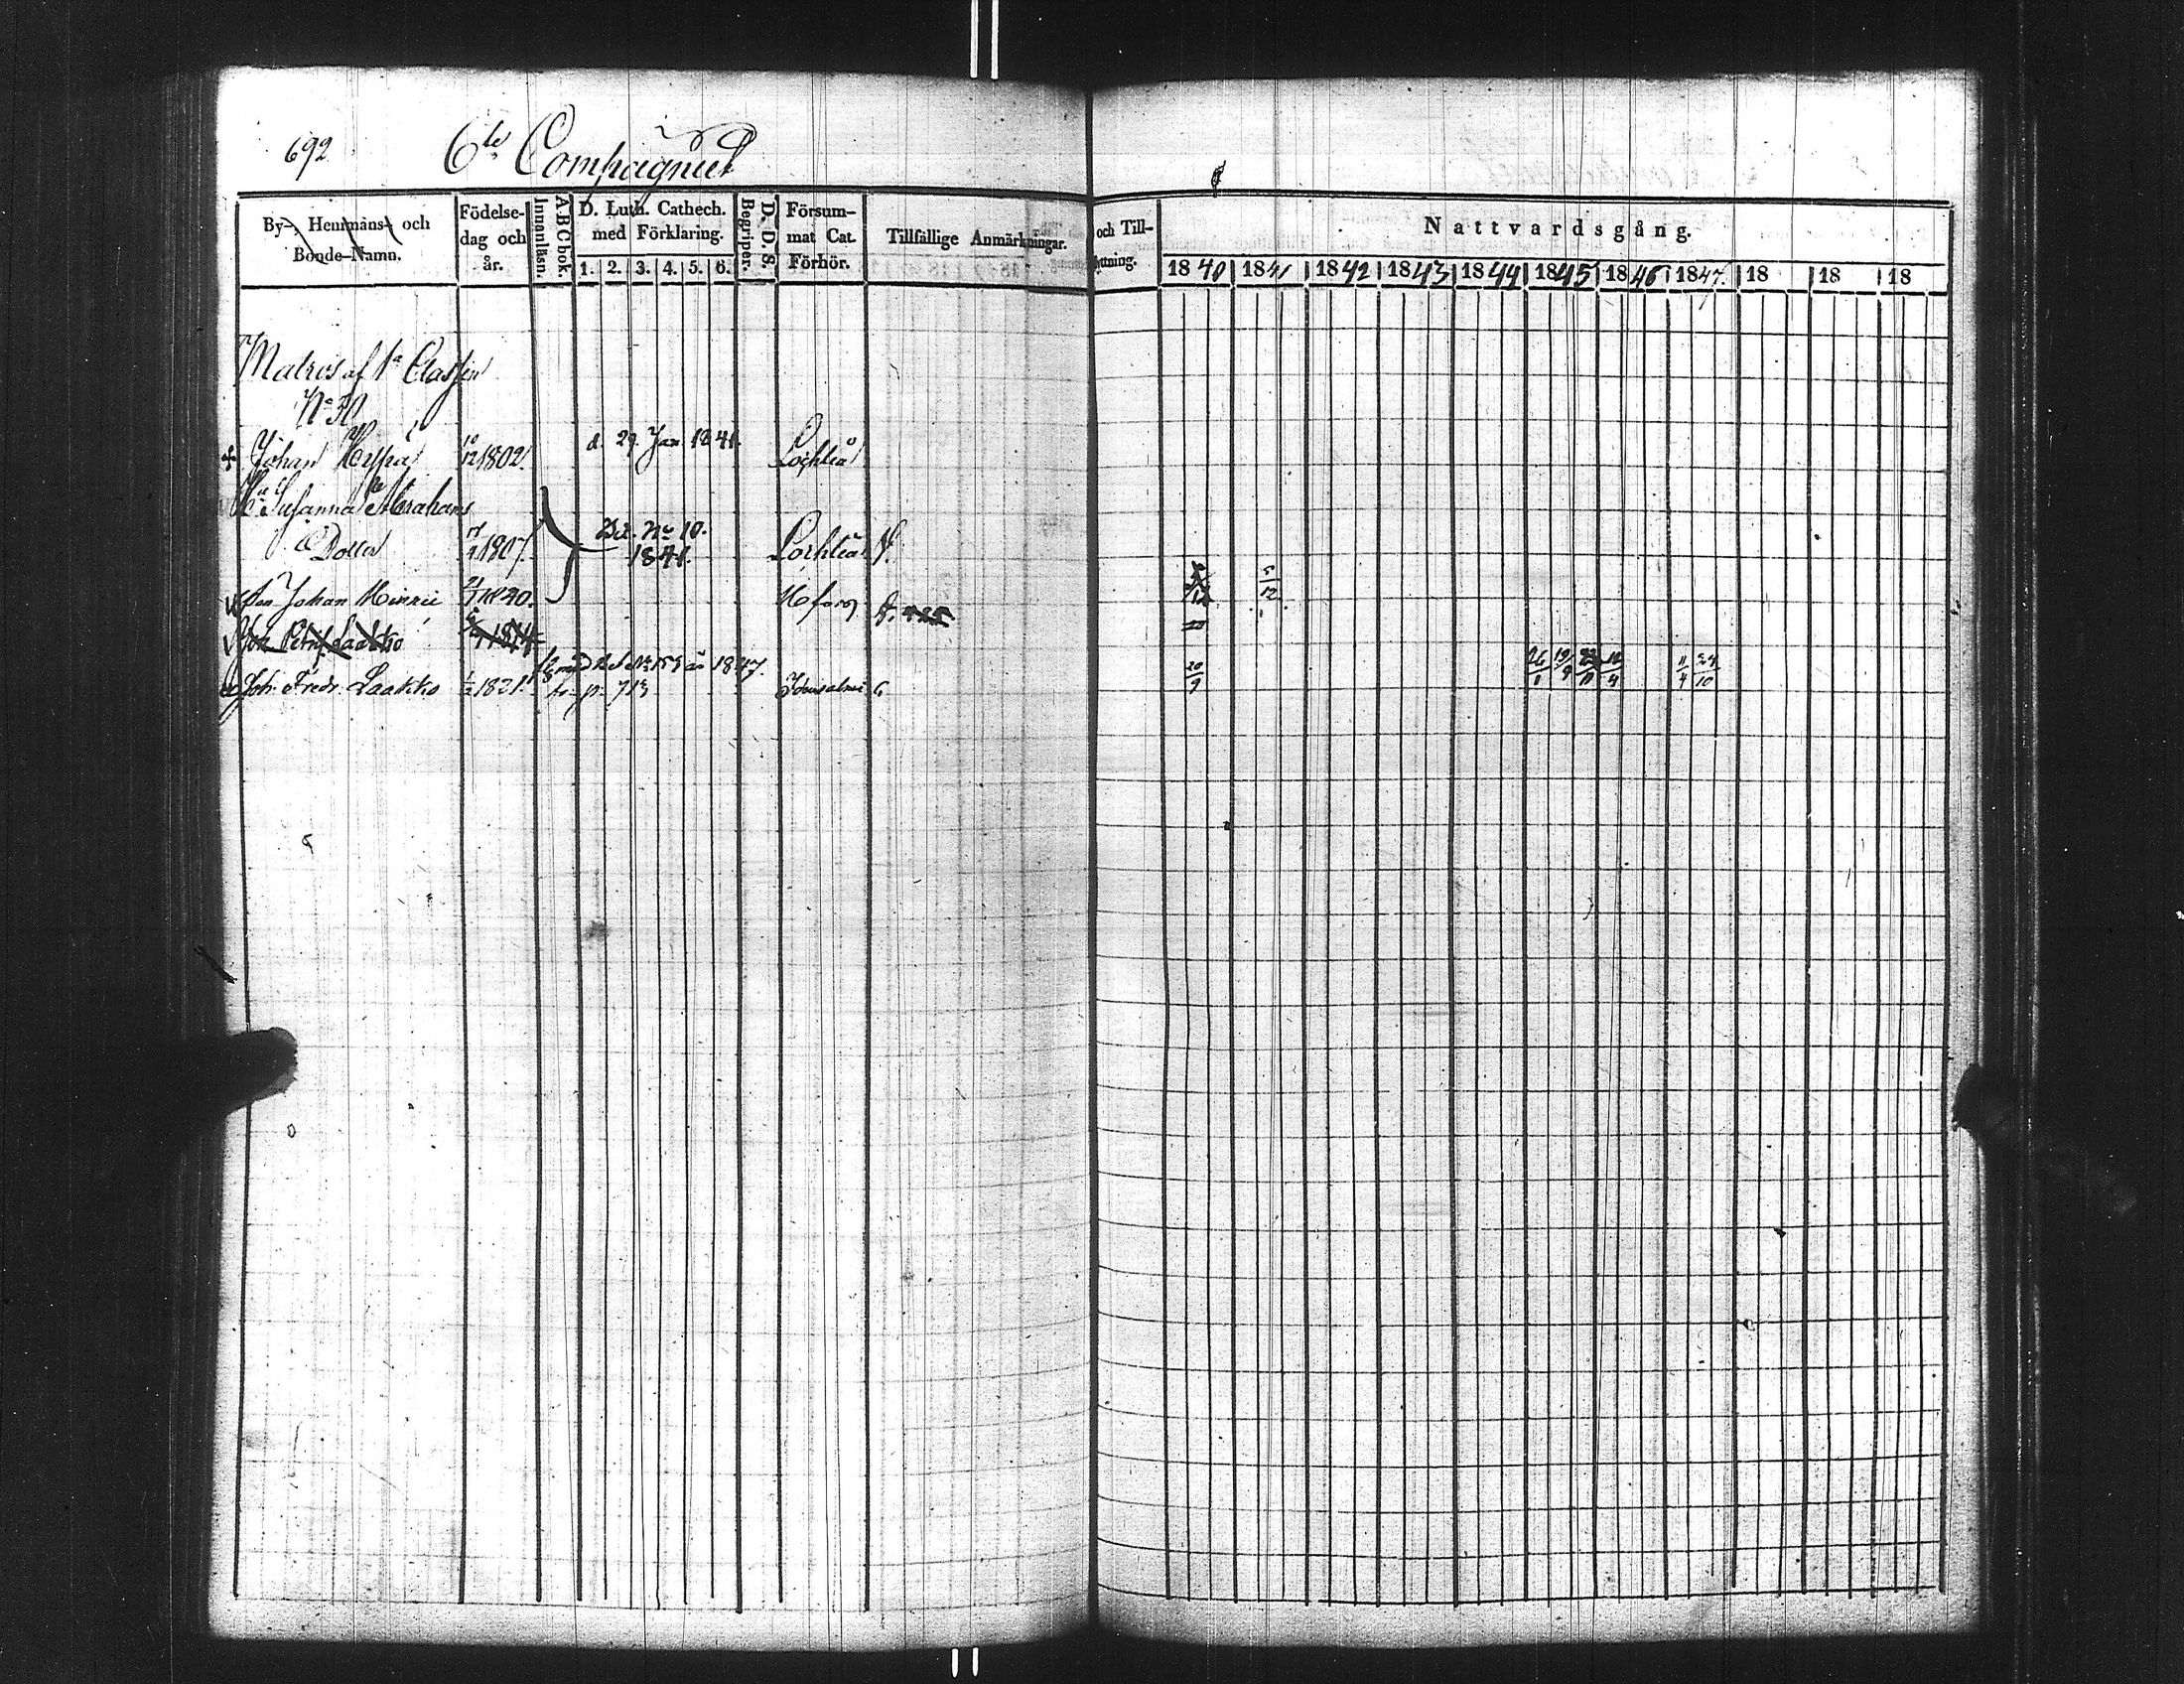 692 6te Compagniet
By-, Hemmans- och Bonde-Namn.
Födelse-dag och år.
Innanläsn.
A B C bok.
D. Luth. Cathech. med Förklaring.
1. 2. 3. 4. 5. 6.
Begriper.
D. D. S.
Försum-mat Cat. Förhör.
Tillfällige Anmärkningar.
och Till-
flyttning.
Nattvardsgång.
1840 1841 1842 1843 1844 1845 1846 1847. 18 18 18
Matros af 1a Classen
No 30
Johan 10/12 1802. d. 29. Jan. 1841. Lochteå
Hu Susanna Abrahams
Dotter 1807. No 10. 1841. Lochteå
Son Johan Henric 1830. H:fors 5/12
Petr. Laakko
No 159 år 1847.
Joh. Fredr. Laakko 1/2 1821. tr. p. 713 Idensalmi 20/9 11/4 24/10